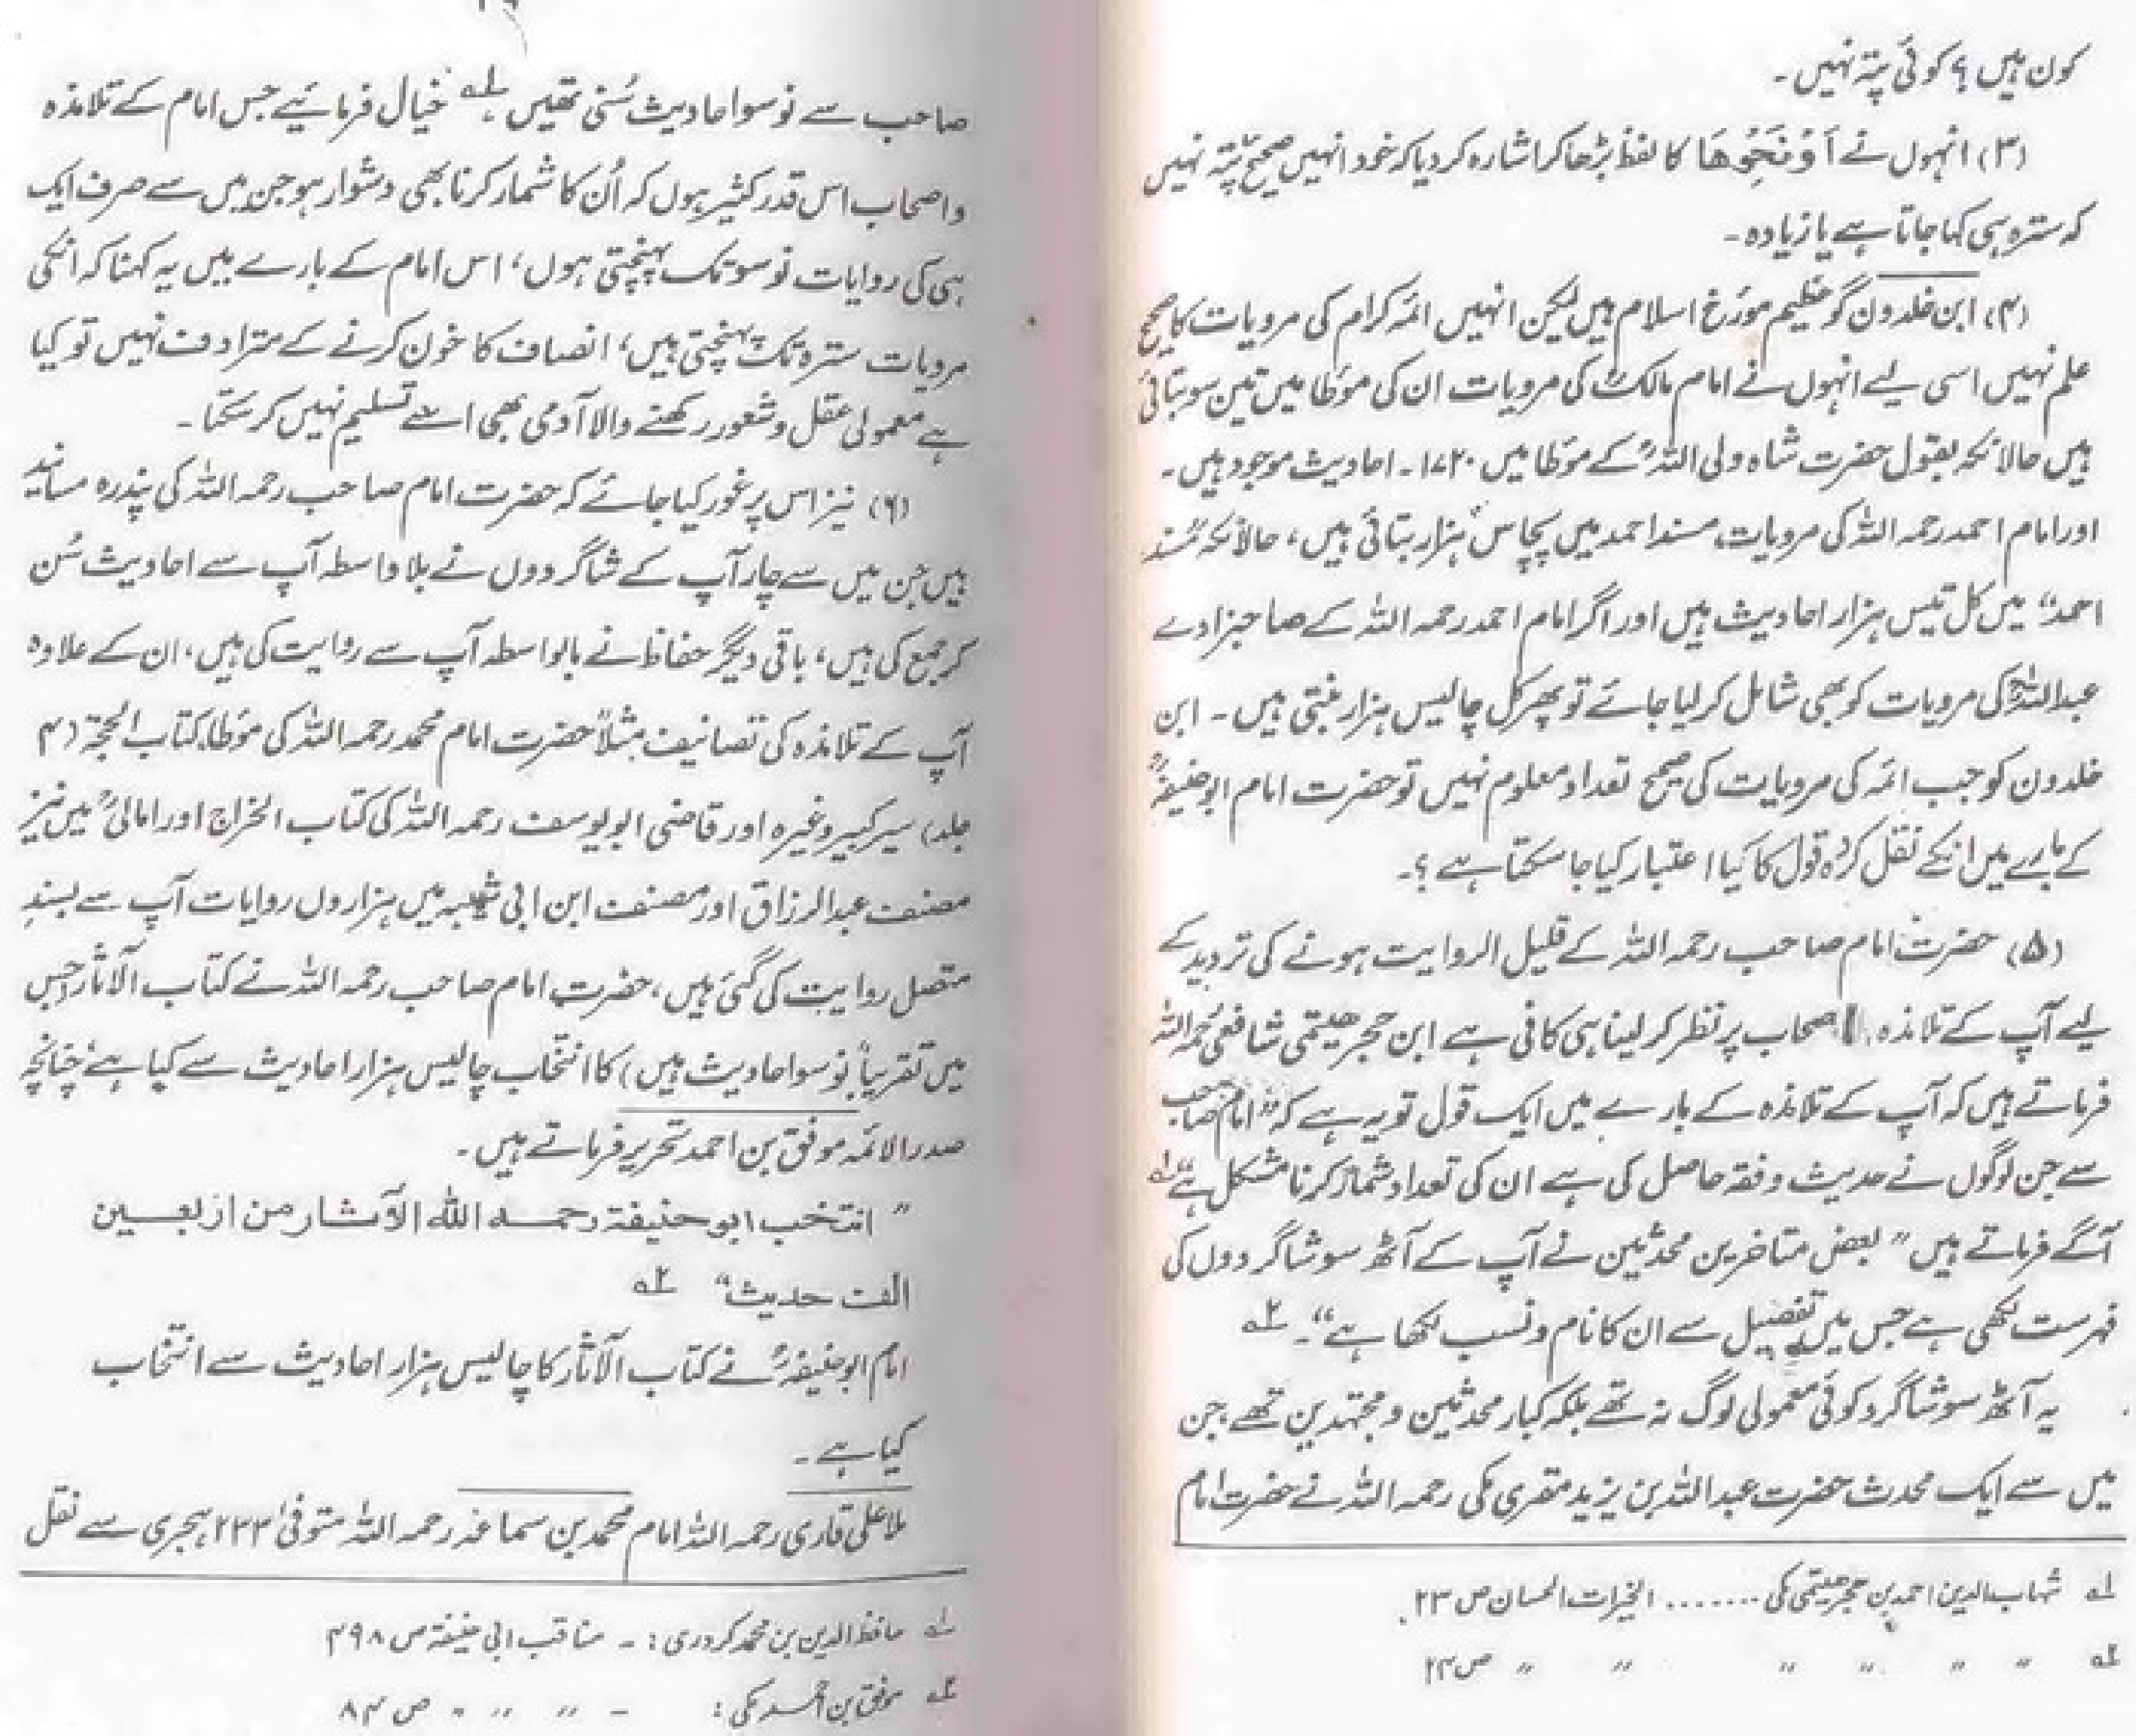 کون ہیں؟ کوئی پتہ نہیں۔
(۳) انہوں نے اَوْ نَحْوُھَا کا لفظ بڑھا کر اشارہ کر دیا کہ خود انہیں صحیح پتہ نہیں
کہ سترہ ہی کہا جاتا ہے یا زیادہ۔
(۴) ابن خلدون گو عظیم مورخ اسلام ہیں لیکن انہیں ائمہ کرام کی مرویات کا صحیح
علم نہیں اسی لیے انہوں نے امام مالکؒ کی مرویات ان کی موطا میں تین سو بتائی
ہیں حالانکہ بقول حضرت شاہ ولی اللہؒ کے موطا میں ۱۷۲۰۔ احادیث موجود ہیں۔
اور امام احمد رحمہ اللہ کی مرویات مسند احمد میں پچاس ہزار بتائی ہیں، حالانکہ "مسند
احمد" میں کل تیس ہزار احادیث ہیں اور اگر امام احمد رحمہ اللہ کے صاحبزادے
عبداللہؒ کی مرویات کو بھی شامل کر لیا جائے تو پھر کل چالیس ہزار بنتی ہیں۔ ابن
خلدون کو جب ائمہ کی مرویات کی صحیح تعداد معلوم نہیں تو حضرت امام ابو حنیفہؒ
کے بارے میں انکے نقل کردہ قول کا کیا اعتبار کیا جا سکتا ہے؟۔
(۵) حضرت امام صاحب رحمہ اللہ کے قلیل الروایت ہونے کی تردید کے
لیے آپ کے تلامذہ اصحاب پر نظر کر لینا ہی کافی ہے ابن حجر ہیتمی شافعی رحمہ اللہ
فرماتے ہیں کہ آپ کے تلامذہ کے بارے میں ایک قول تو یہ ہے کہ "امام صاحب
سے جن لوگوں نے حدیث و فقہ حاصل کی ہے ان کی تعداد شمار کرنا مشکل ہے" ۱؎
آگے فرماتے ہیں "بعض متاخرین محدثین نے آپ کے آٹھ سو شاگردوں کی
فہرست لکھی ہے جس میں تفصیل سے ان کا نام و نسب لکھا ہے"۔ ۲؎
یہ آٹھ سو شاگرد کوئی معمولی لوگ نہ تھے بلکہ کبار محدثین و مجتہدین تھے، جن
میں سے ایک محدث حضرت عبداللہ بن یزید مقری مکی رحمہ اللہ نے حضرت امام
۱؎ شہاب الدین احمد بن حجر ہیتمی مکی ....... الخیرات الحسان ص ۲۳.
۲؎ " " " " " " ص ۲۴
صاحب سے نو سو احادیث سُنی تھیں ۱؎ خیال فرمائیے جس امام کے تلامذہ
و اصحاب اس قدر کثیر ہوں کہ اُن کا شمار کرنا بھی دشوار ہو جن میں سے صرف ایک
ہی کی روایات نو سو تک پہنچتی ہوں، اس امام کے بارے میں یہ کہنا کہ انکی
مرویات سترہ تک پہنچتی ہیں، انصاف کا خون کرنے کے مترادف نہیں تو کیا
ہے معمولی عقل و شعور رکھنے والا آدمی بھی اسے تسلیم نہیں کر سکتا۔
(۶) نیز اس پر غور کیا جائے کہ حضرت امام صاحب رحمہ اللہ کی پندرہ مسانید
ہیں جن میں سے چار آپ کے شاگردوں نے بلا واسطہ آپ سے احادیث سُن
کر جمع کی ہیں، باقی دیگر حفاظ نے بالواسطہ آپ سے روایت کی ہیں، ان کے علاوہ
آپ کے تلامذہ کی تصانیف مثلاً حضرت امام محمد رحمہ اللہ کی موطا، کتاب الحجۃ (۴
جلد) سیر کبیر وغیرہ اور قاضی ابو یوسف رحمہ اللہ کی کتاب الخراج اور امالی میں نیز
مصنف عبدالرزاق اور مصنف ابن ابی شیبہ میں ہزاروں روایات آپ سے بسندِ
متصل روایت کی گئی ہیں، حضرت امام صاحب رحمہ اللہ نے کتاب الآثار (جس
میں تقریباً نو سو احادیث ہیں) کا انتخاب چالیس ہزار احادیث سے کیا ہے چنانچہ
صدر الائمہ موفق بن احمد تحریر فرماتے ہیں۔
"انتخب ابو حنیفۃ رحمہ اللہ الآثار من اربعین
الف حدیث" ۲؎
امام ابو حنیفہؒ نے کتاب الآثار کا چالیس ہزار احادیث سے انتخاب
کیا ہے۔
ملا علی قاری رحمہ اللہ امام محمد بن سماعہ رحمہ اللہ متوفیٰ ۲۳۳ ہجری سے نقل
۱؎ حافظ الدین بن محمد کردری: ۔ مناقب ابی حنیفۃ ص ۴۹۸
۲؎ موفق بن احمد مکی: ۔ " " " ص ۸۴